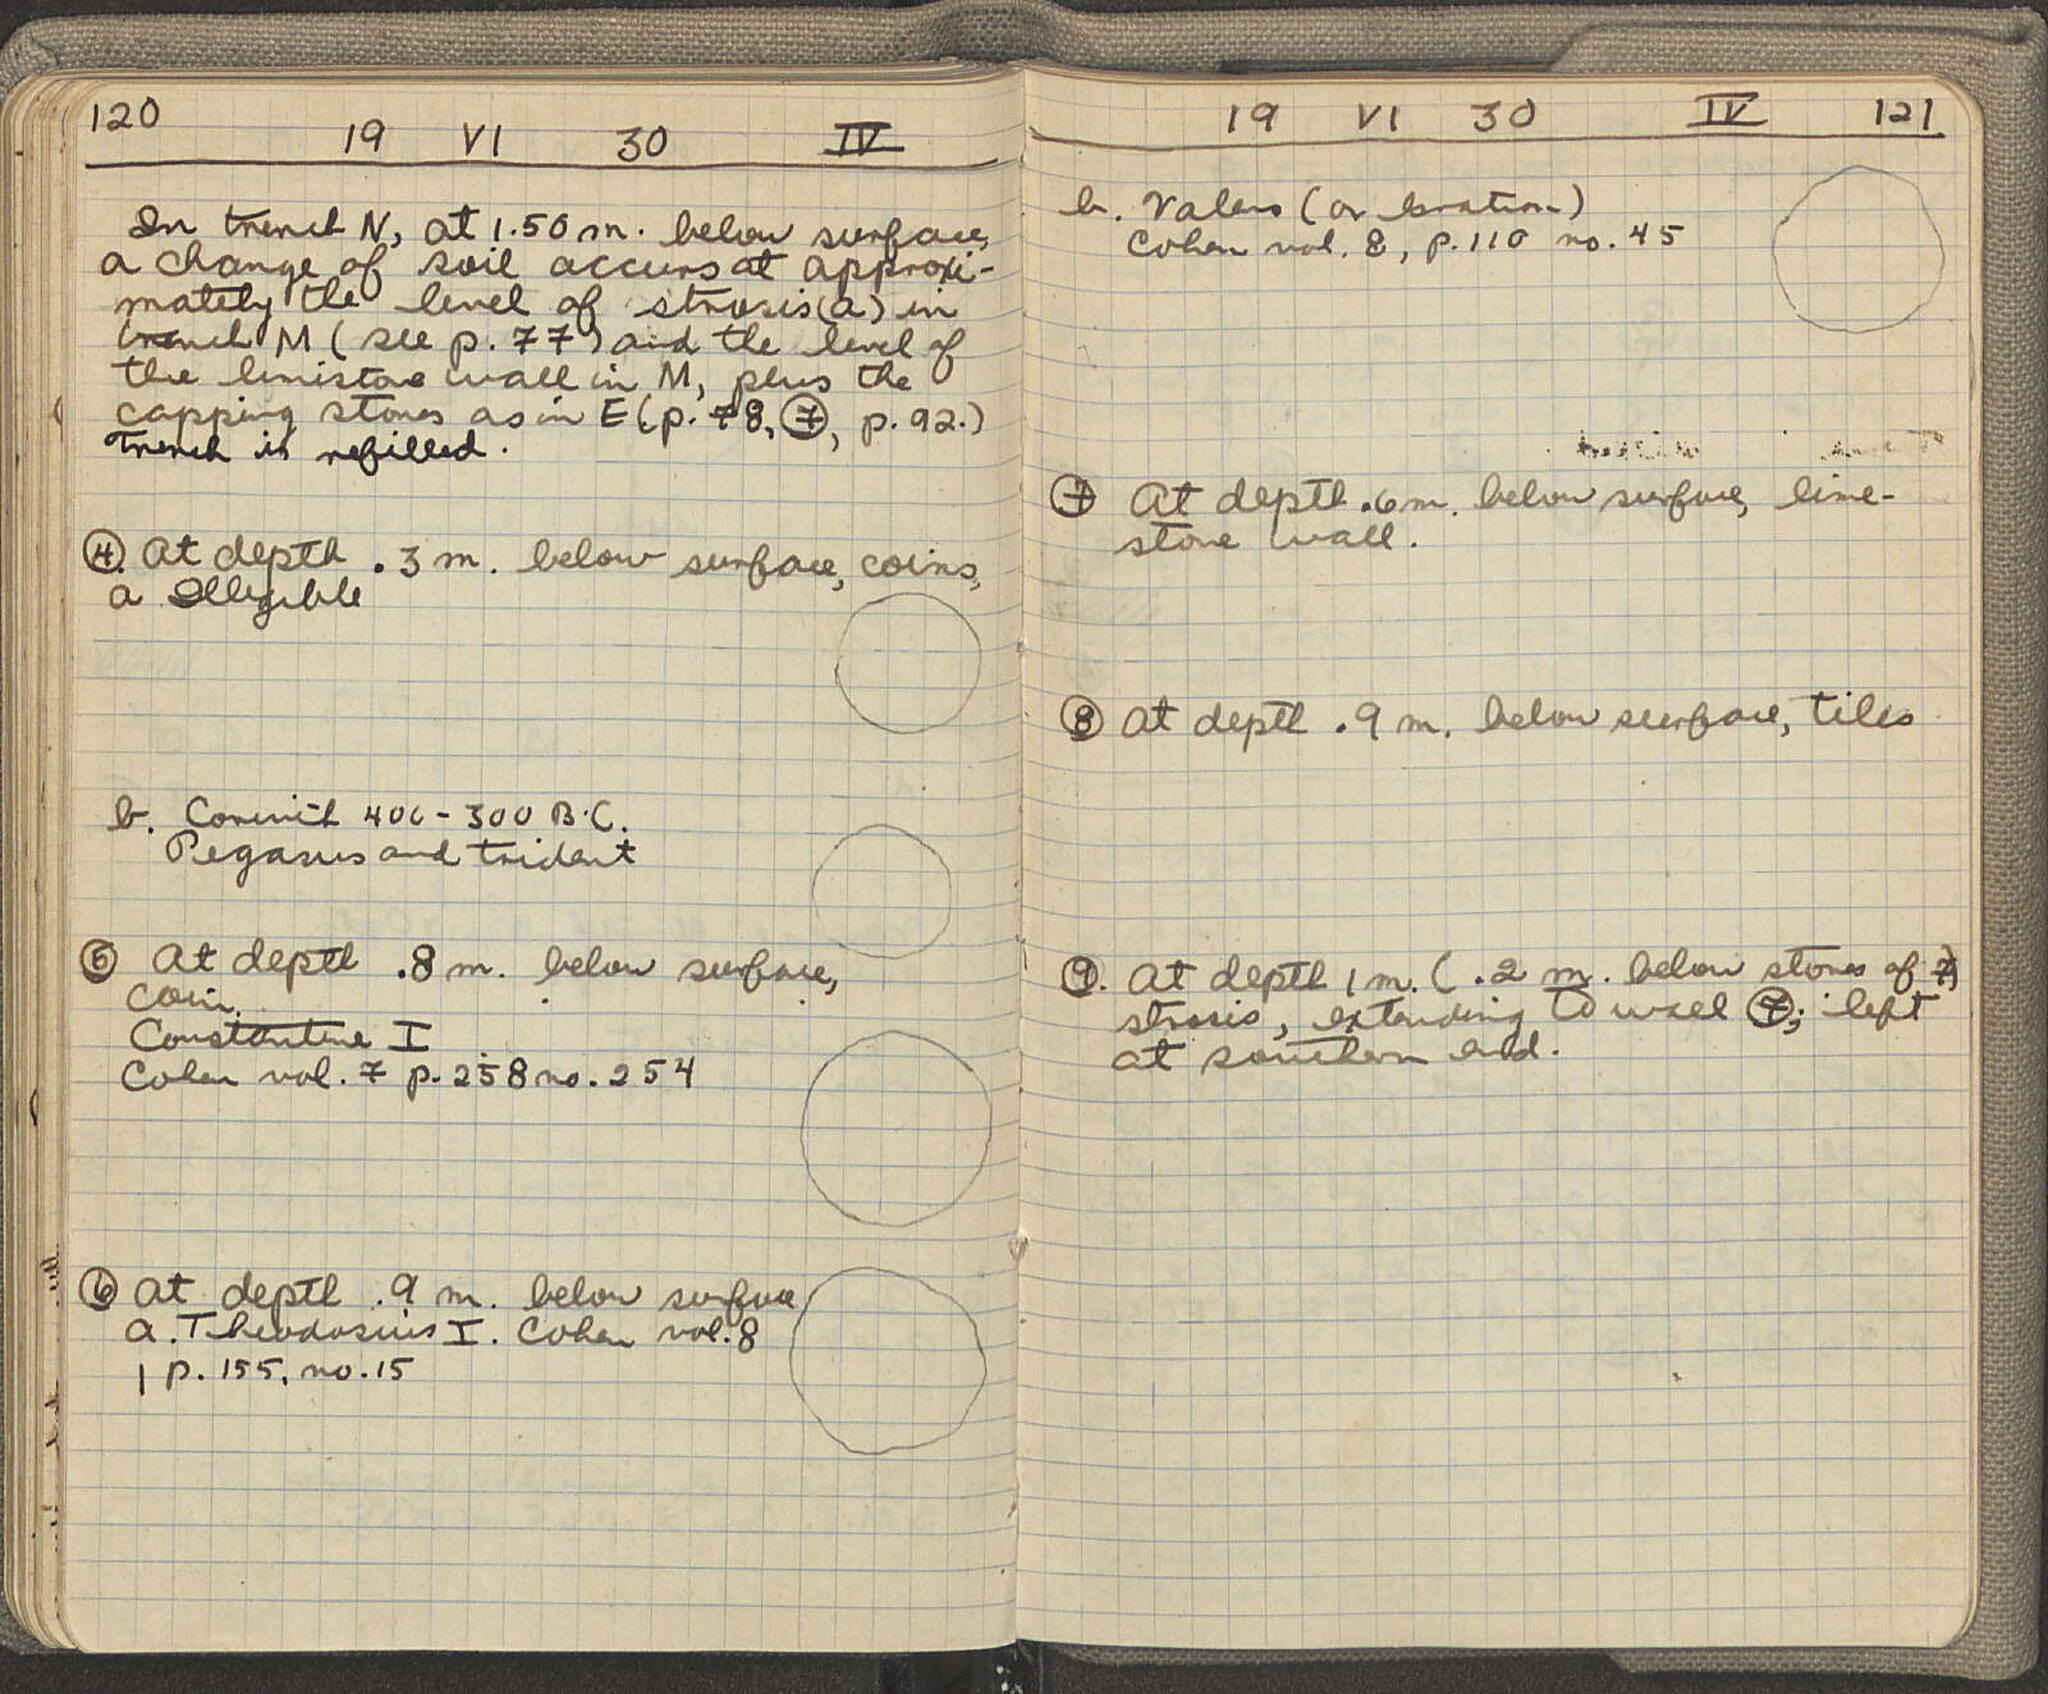 120
19 VI 30 IV
In trench N, at 1.50 m. below surface,
a change of soil occurs at approxi-
mately the level of strosis (a) in
trench M (see p. 77) and the level of
the limestone wall in M, plus the
capping stones as in E (p. 78, ⑦, p. 92.)
Trench is refilled.
④ At depth .3 m. below surface, coins,
a Illegible
b. Corinth 400-300 B.C.
Pegasus and trident
⑤ At depth .8 m. below surface,
coin.
Constantine I
Cohen vol. 7 p. 258 no. 254
⑥ At depth .9 m. below surface
a. Theodosius I. Cohen vol. 8
, p. 155, no. 15
19 VI 30 IV 121
b. Valens (or Gratian)
Cohen vol. 8, p. 110 no. 45
⑦ At depth .6 m. below surface, lime-
stone wall.
⑧ At depth .9 m. below surface, tiles
⑨. At depth 1 m. (.2 m. below stones of 7)
strosis, extending to wall ⑦; left
at southern end.